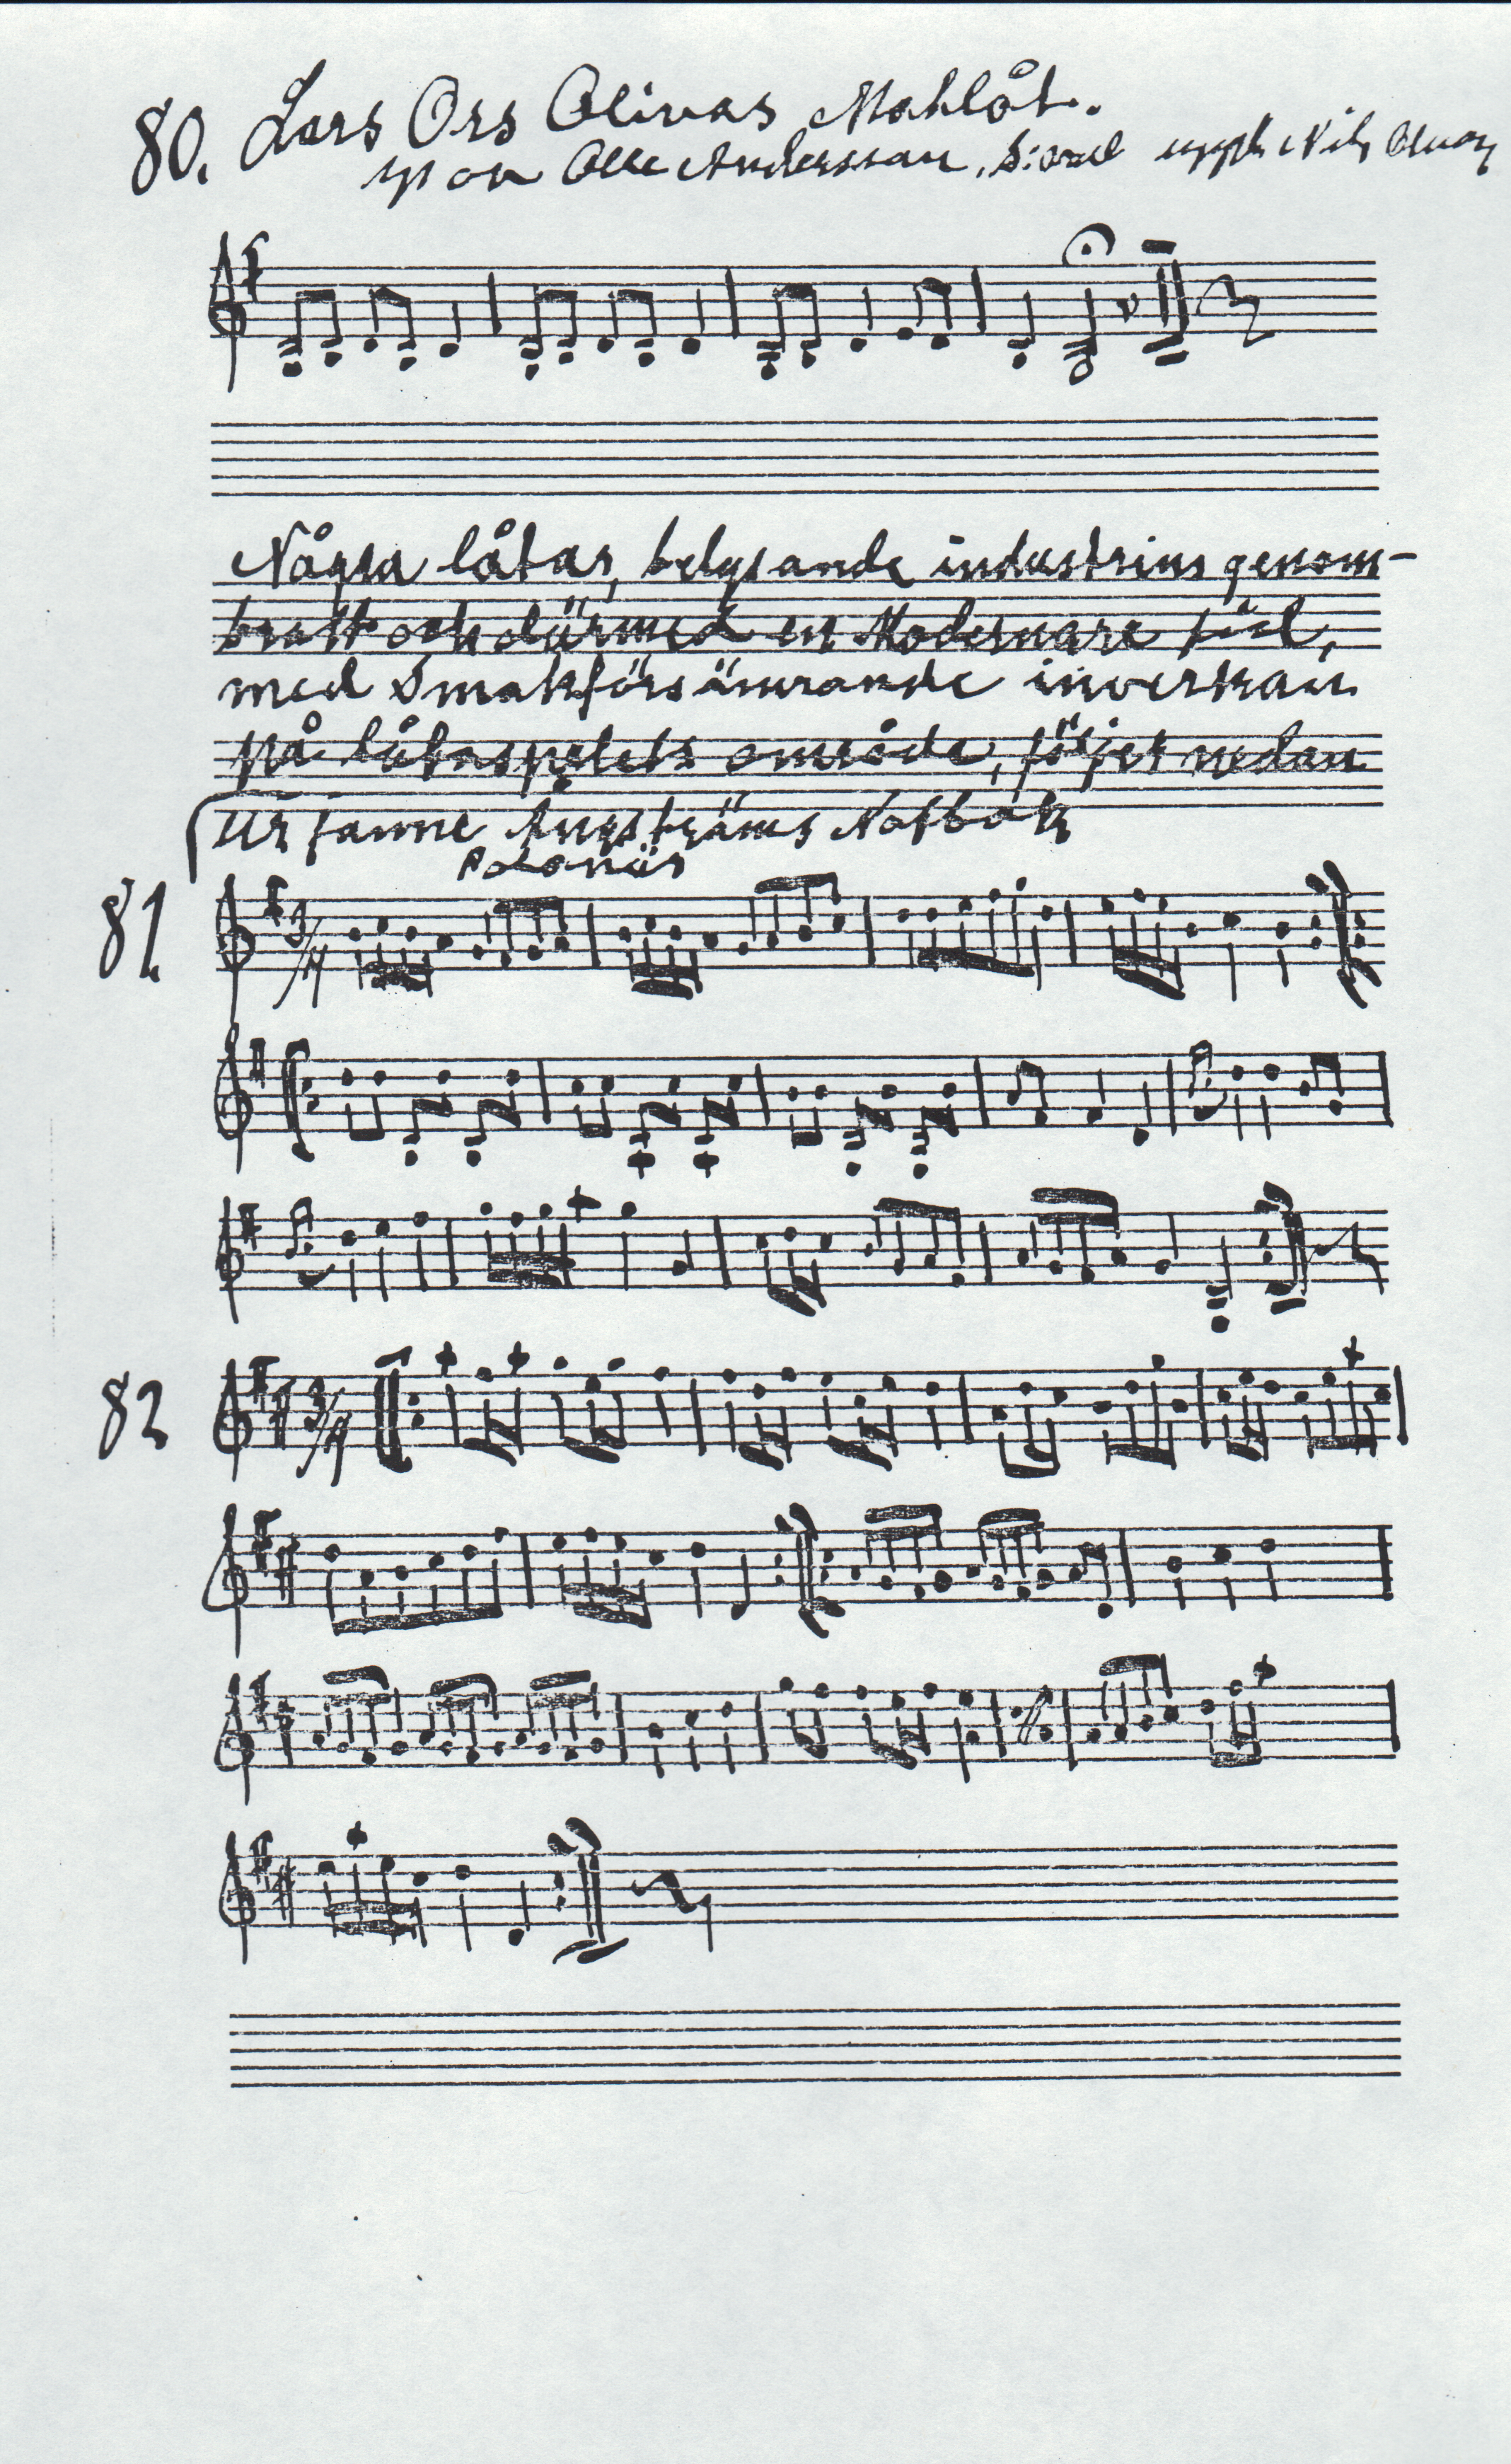 80. Lars Ors Olivas Mahlåt.
Olle Andersson,
Några låtar, belysande industrins genom-
brott och därmed en Modernare tid,
med Smakförsämrande inverkan
på låtaspelets område, följer nedan
Ur Janne Ångströms Notbok
Polonäs
81
3/4
82
3/4